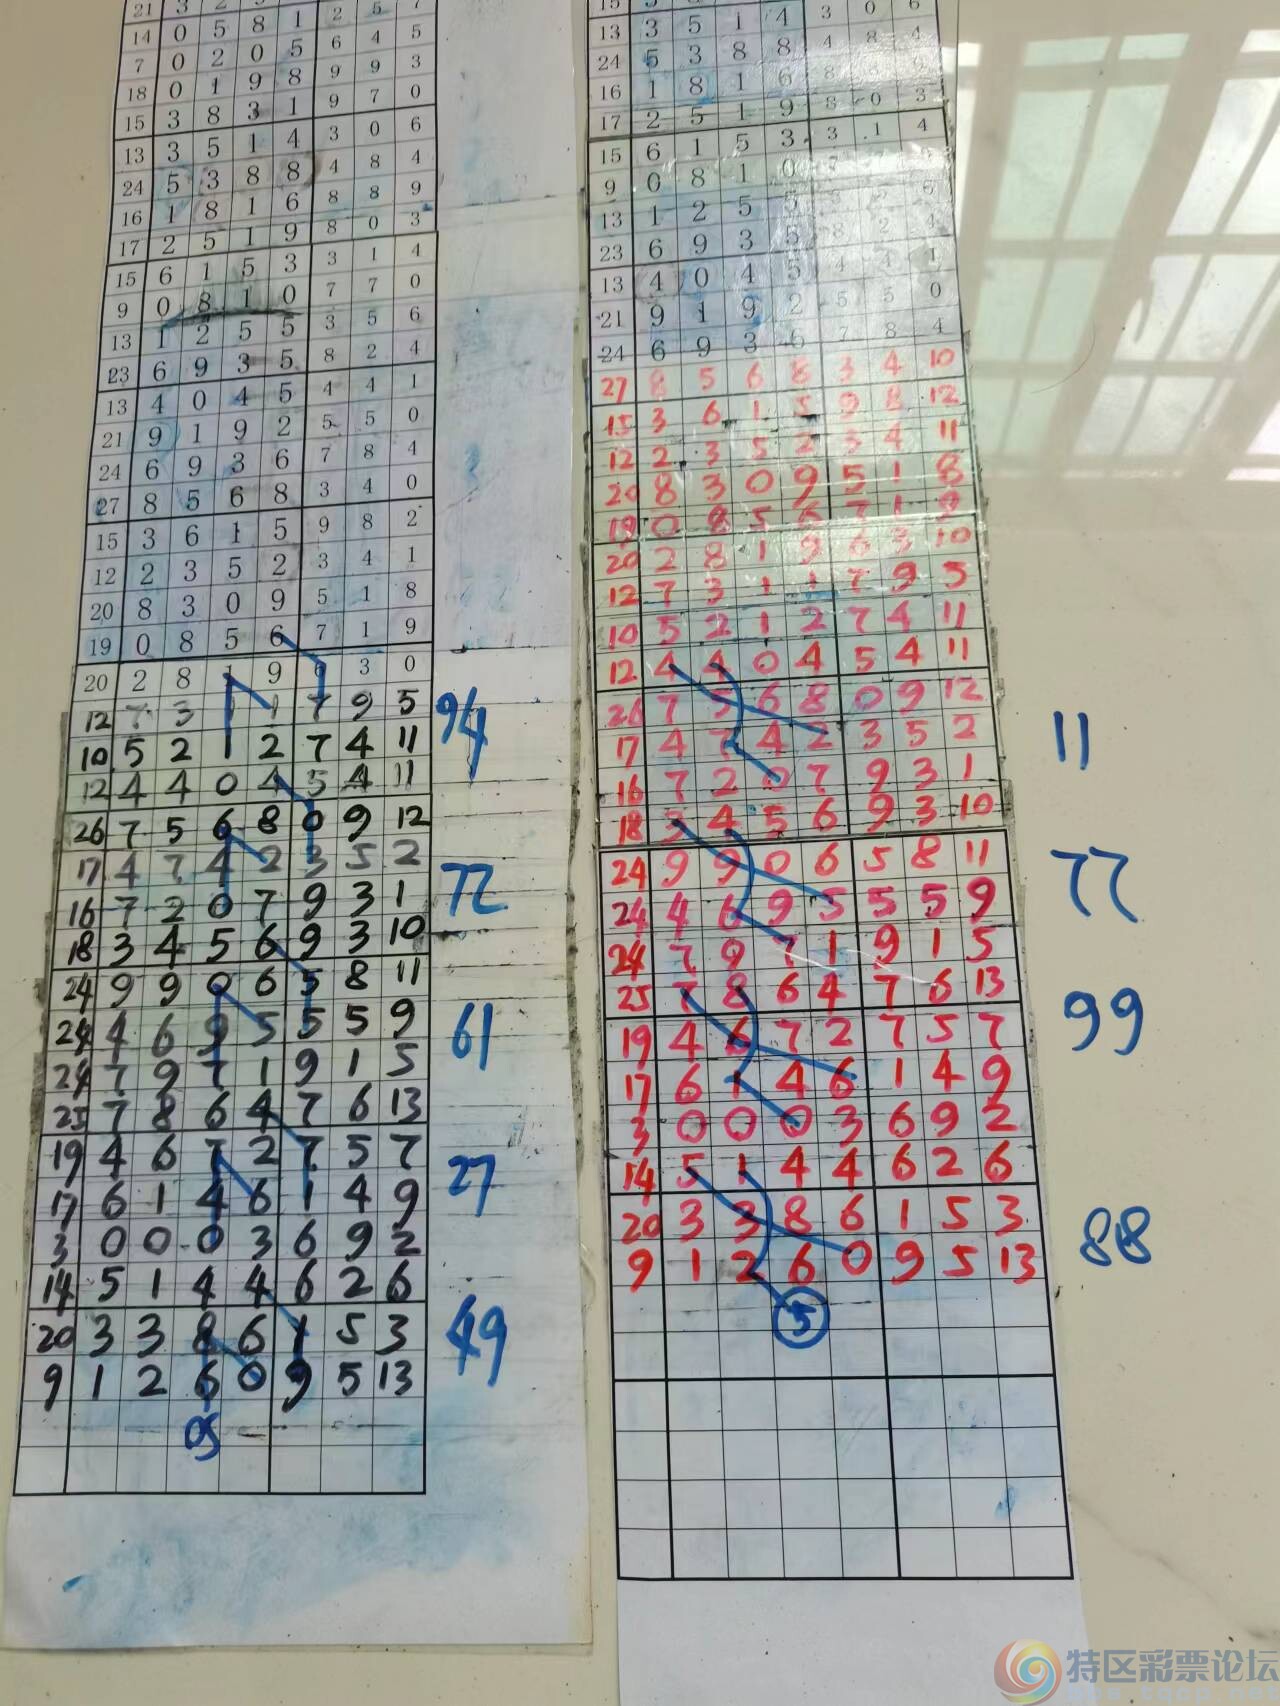 14 0 5 8 1 2 5 7
7 0 2 0 5 6 4 5
18 0 1 9 8 9 9 3
15 3 8 3 1 9 7 0
13 3 5 1 4 3 0 6
24 5 3 8 8 4 8 4
16 1 8 1 6 8 8 9
17 2 5 1 9 8 0 3
15 6 1 5 3 3 1 4
9 0 8 1 0 7 7 0
13 1 2 5 5 3 5 6
23 6 9 3 5 8 2 4
13 4 0 4 5 4 4 1
21 9 1 9 2 5 5 0
24 6 9 3 6 7 8 4
27 8 5 6 8 3 4 0
15 3 6 1 5 9 8 2
12 2 3 5 2 3 4 1
20 8 3 0 9 5 1 8
19 0 8 5 6 7 1 9
20 2 8 1 9 6 3 0
12 7 3 1 1 7 9 5
94
10 5 2 1 2 7 4 11
12 4 4 0 4 5 4 11
26 7 5 6 8 0 9 12
17 4 7 4 2 3 5 2
72
16 7 2 0 7 9 3 1
18 3 4 5 6 9 3 10
24 9 9 0 6 5 8 11
24 4 6 9 5 5 5 9
61
24 7 9 7 1 9 1 5
25 7 8 6 4 7 6 13
19 4 6 7 2 7 5 7
27
17 6 1 4 6 1 4 9
3 0 0 0 3 6 9 2
14 5 1 4 4 6 2 6
20 3 3 8 6 1 5 3
49
9 1 2 6 0 9 5 13
05
13 3 5 1 4 3 0 6
24 5 3 8 8 4 8 4
16 1 8 1 6 8 8 9
17 2 5 1 9 8 0 3
15 6 1 5 3 3 1 4
9 0 8 1 0 7 7
13 1 2 5 5 5 6
23 6 9 3 5 8 2 4
13 4 0 4 5 4 4 1
21 9 1 9 2 5 5 0
24 6 9 3 6 7 8 4
27 8 5 6 8 3 4 10
15 3 6 1 5 9 8 12
12 2 3 5 2 3 4 11
20 8 3 0 9 5 1 8
19 0 8 5 6 7 1 9
20 2 8 1 9 6 3 10
12 7 3 1 1 7 9 5
10 5 2 1 2 7 4 11
12 4 4 0 4 5 4 11
26 7 5 6 8 0 9 12
17 4 7 4 2 3 5 2
11
16 7 2 0 7 9 3 1
18 3 4 5 6 9 3 10
24 9 9 0 6 5 8 11
77
24 4 6 9 5 5 5 9
24 7 9 7 1 9 1 5
25 7 8 6 4 7 6 13
99
19 4 6 7 2 7 5 7
17 6 1 4 6 1 4 9
3 0 0 0 3 6 9 2
14 5 1 4 4 6 2 6
20 3 3 8 6 1 5 3
88
9 1 2 6 0 9 5 13
5
特区彩票论坛